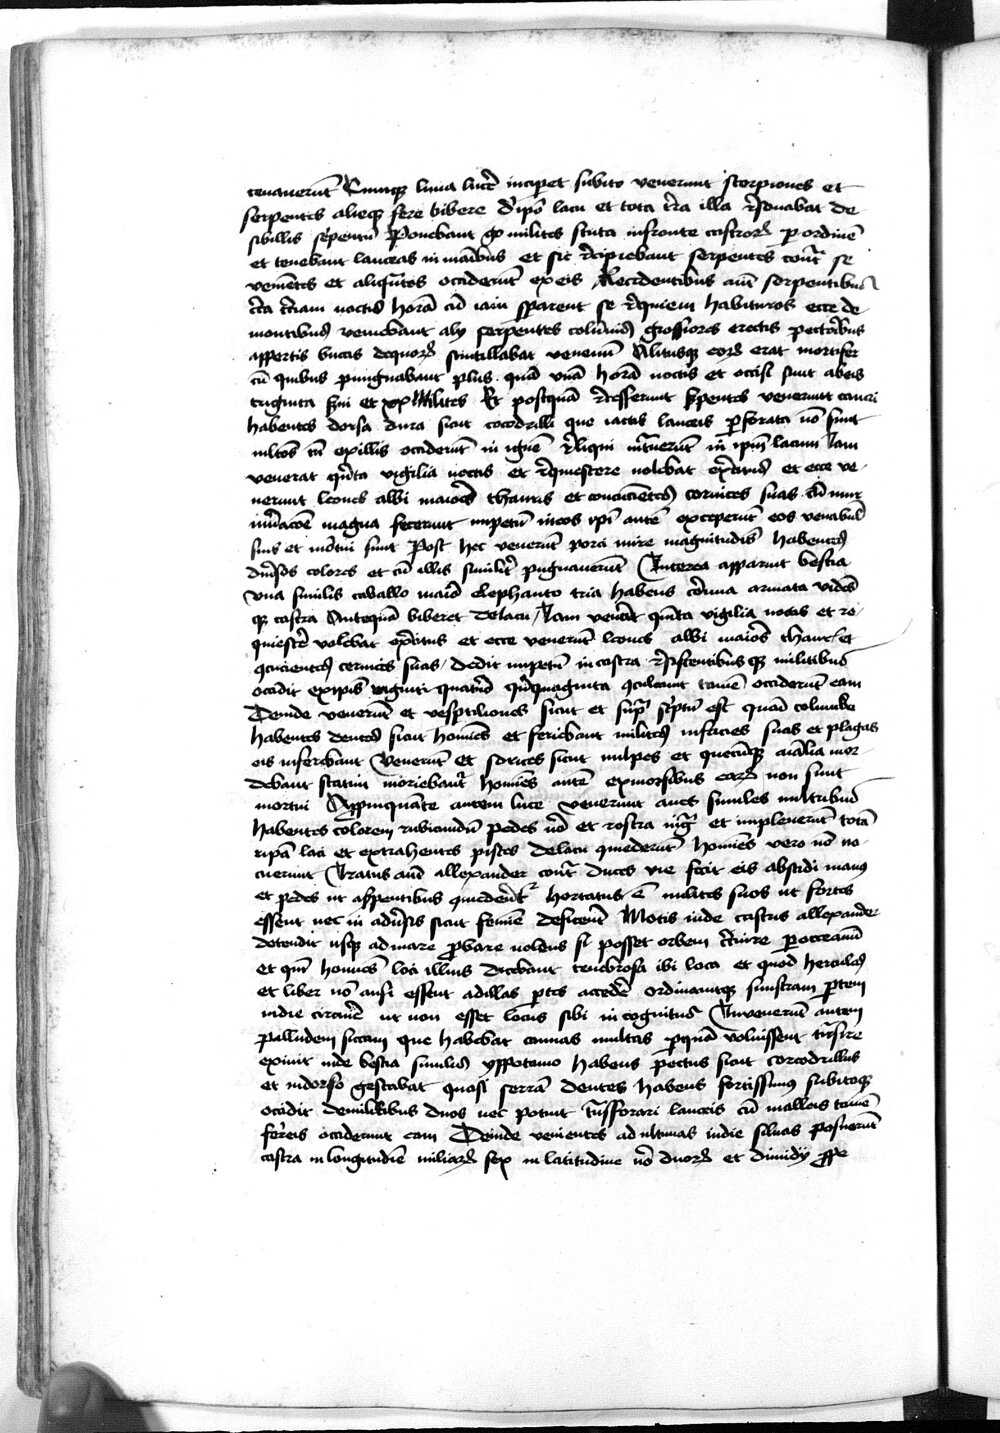 cenauerūt Cumq; luna lucē inciꝑet subito venerunt scorpiones et
serpentes alieq; fere bibere de ipō lacu et tota tr̄a illa resonabat de
sibillis serpentū Ponebant gͦ milites scuta infronte castrorꝝ ꝑ ordinē
et tenebant lanceas in manibus et sic recipiebant serpentes contͣ se
veniētes et aliqͣntos occiderunt ex eis Recedentibus autē serpentibus
circa terciam noctis horā cū iam sperarent se requiem habituros ecce de
montibus veniebant alij serpentes columnis grossiores erectis pectoribus
appertis bucis de quorꝝ scintillabat venenū Alitusq; eorꝝ erat mortifer
cū quibus pungnabant plus quā vnā horā noctis et occisi sunt ab eis
triginta serui et xx Milites Et postquā recesserunt serpentes venerunt cancri
habentes dorsa dura sicut cocodrilli que iactis lanceis ꝑforata nō sunt
multos tn̄ ex illis occiderūt in ignē reliqui intrauerūt in ipm̄ lacum Iam
venerat quīta vigilia noctis et requiescere nolebat exercitus et ecce ve-
nerunt leones albi maiores thauris et concucientes ceruices suas cū mur
muracōe magna fecerunt impetū in eos ipī autē exceperunt eos venabulis
suis et mortui sunt Post hec venerūt porci mire magnitudinis habentes
diuersos colores et cū illis similiter pugnauerūt Interea apparuit bestia
vna similis caballo maior elephanto tria habens cornua armata vidēs
q; castra Antequā biberet de lacu Iam venerat quīta vigilia noctis et re
quiescere volebat exercitus et ecce venerūt leones albi maiores thauris et
concucientes ceruices suas dedit impetū in castra resistentibus q; militibus
occidit ex ipsis viginti quatuor quīquaginta conculcauit tamē occiderūt eam
Deinde venerūt et vespertiliones sicut et suprͣ scriptū est quasi columbe
habentes dentes sicut homines et feriebant milites in facies suas et plagas
eis inferebant Venerūt et sorices sicut vulpes et quecūq; aīalia mor-
debant statim moriebantur homines autē ex morsibus eorꝝ non sunt
mortui Appinquāte autem luce venerunt aues similes vulturibus
habentes colorem rubicundū pedes vero et rostra nigra et impleuerūt totā
ripā laci et extrahentes pisces de lacu comederūt homines vero nō no-
cuerunt Iratus autē allexander contͣ duces vie fecit eis abscidi manus
et pedes ut a serpentibus comederētur hortatus ē milites suos ut fortes
essent nec in aduersis sicut femine deficerēt Motis inde castris allexander
detendit usq; ad mare probare uolens si posset orbem circuire ꝑ occeanū
et quia homines loci illius dicebant tenebrosa ibi loca et quod hercules
et liber nō ausi essent ad illas partes accedere ordinauitq; sinistram partem
indie circuire ut non esset locus sibi in cognitus Inuenerūt autem
palludem siccam que habebat cannas multas per quā voluissent transire
exiuit inde bestia similis yppotamo habens pectus sicut corcodrillus
et in dorso gestabat quasi serrā dentes habens fortissimos subitoq;
occidit de militibus duos nec potuit transforari lanceis cū malleis tamē
ferreis occiderunt eam Deinde venientes ad ultimas indie siluas posuerūt
castra in longitudine miliarꝝ sex in latitudine vō duorꝝ et dimidij prope